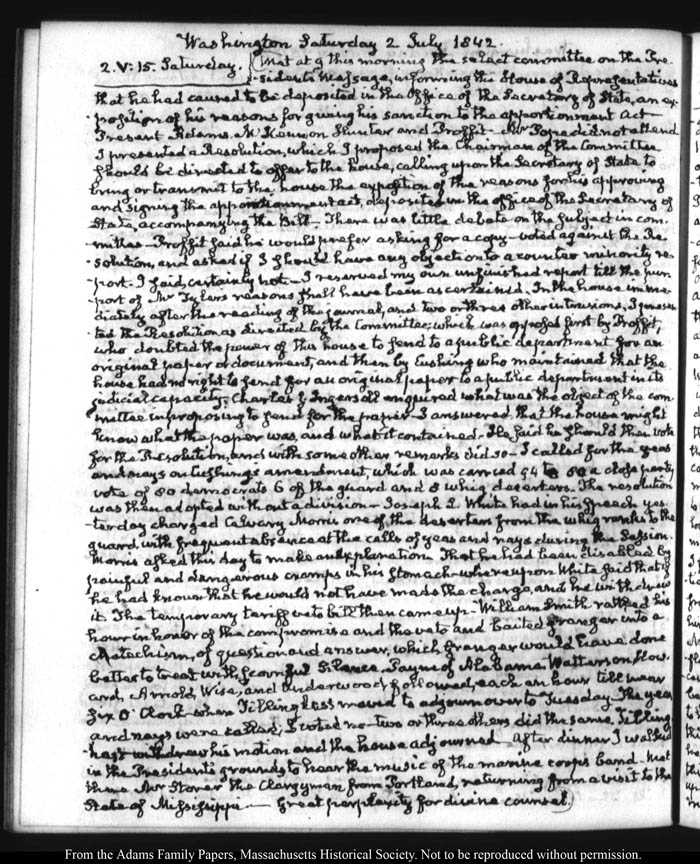 Washington Saturday 2 July 1842.
2. V:15. Saturday. Met at 9 this morning the select committee on the Pre-
-sident's Message, informing the House of Representatives
that he had caused to be deposited in the Office of the Secretary of State, an ex-
-position of his reasons for giving his sanction to the apportionment Act—
Present Adams. McKennon Hunter and Proffit— Mr Pope did not attend
I presented a Resolution, which I proposed the Chairman of the Committee
should be directed to offer to the house, calling upon the Secretary of State to
bring or transmit to the house the exposition of the reasons for his approving
and signing the apportionment act, deposited in the office of the Secretary of
State, accompanying the Bill. There was little debate on the subject in com-
-mittee— Proffit said he would prefer asking for a copy— voted against the Re-
-solution, and asked if I should have any objection to a counter minority re-
-port. I said, certainly not— I reserved my own unfinished report till the pur-
-port of Mr Tylers reasons shall have been ascertained. In the house imme-
diately after the reading of the journal, and two or three other intrusions, I presen-
-ted the Resolution as directed by the Committee; which was opposed first by Proffit,
who doubted the power of this house to send to a public department for an
original paper or document, and then by Cushing who maintained that the
house had no right to send for an original paper to a public department in its
judicial capacity, Charles J. Ingersoll enquired what was the object of the com-
mittee in proposing to send for the paper— I answered, that the house might
know what the paper was, and what it contained— He said he should then vote
for the Resolution, and with some other remarks did so— I called for the yeas
and nays on Cushings amendment, which was carried 94 to 80 a close party
vote of 80 democrats 6 of the guard and 8 whig deserters. The resolution
was then adopted without a division— Joseph L White had in his speech yes-
-terday charged Calvary Morris one of the deserters from the whig ranks to the
guard, with frequent absence at the calls of yeas and nays during the Session.
Morris asked this day to make an explanation That he had been disabled by
painful and dangerous cramps in his stomach— whereupon White said that if
he had known that he would not have made the charge, and he withdrew
it. The temporary tariff veto bill then came up— William Smith rattled his
hour in honor of the compromise and the veto and baited Granger into a
Catechism, of question and answer, which Granger would have done
better to treat with scornful silence. Payne of Alabama Watterson, How-
ard, Arnold, Wise, and Underwood followed, each an hour till near
six O'Clock when Tillinghast moved to adjourn over to Tuesday— The yeas
and nays were called, I voted no— two or three others did the same. Tilling-
hast withdrew his motion and the house adjourned— After dinner I walked
in the President's grounds to hear the music of the marine corps band. Met
there Mr Storer the Clergyman from Portland, returning from a visit to the
State of Mississippi— Great perplexity for divine counsel.
From the Adams Family Papers, Massachusetts Historical Society. Not to be reproduced without permission.